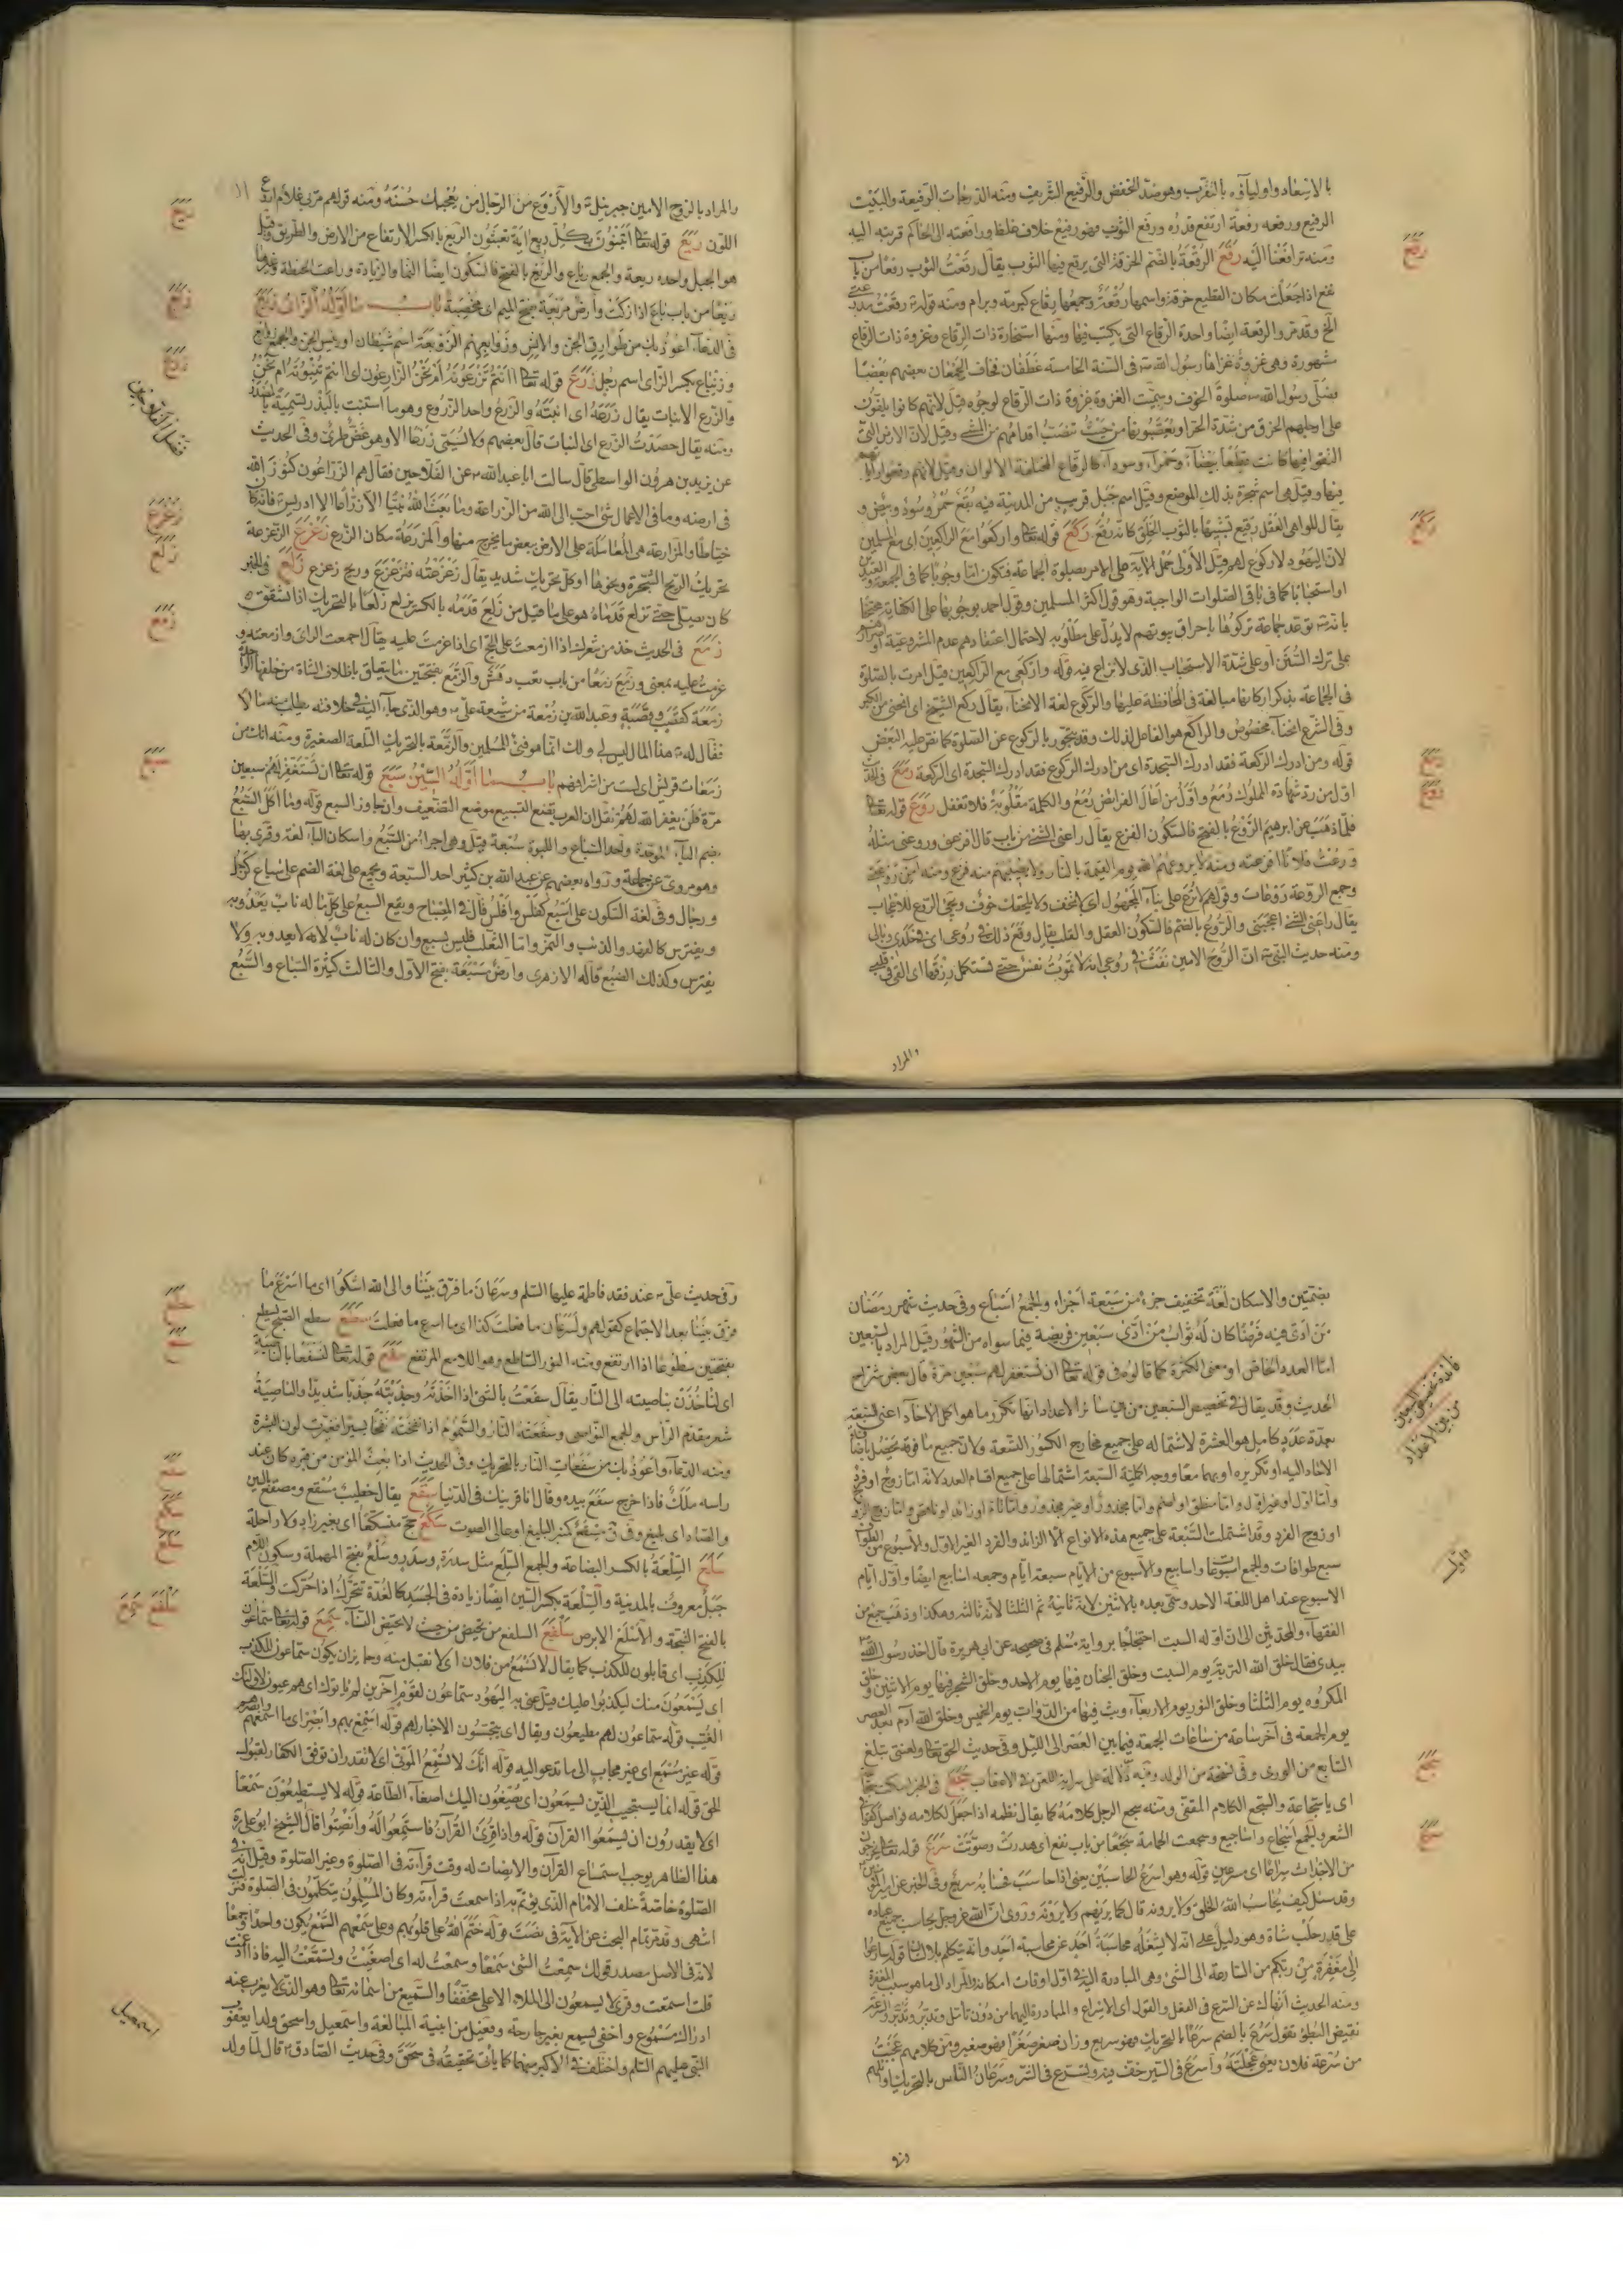 بالاسعاد واولياؤه بالتقرب وهو ضد الخفض والرفيع الشريف ومنه الدرجات الرفيعة والبيت
الرفيع ورفعه رفعة ارتفع قدره ورفع الثوب فهو رفيع خلاف غلظ ورافعته الى الحاكم قربته اليه
ومنه ترافعنا اليه رقع الرقعة بالضم الخرقة التي يرقع فيها الثوب يقال رقعت الثوب رقعا من باب
نفع اذا جعلت مكان القطيع خرقة واسمها رقعة وجمعها رقاع كبرمة وبرام ومنه قوله رقعت مدرعتي
الخ وقد مر والرقعة ايضا واحدة الرقاع التي يكتب فيها ومنها استخارة ذات الرقاع وغزوة ذات الرقاع
مشهورة وهي غزوة غزاها رسول الله ص في السنة الخامسة غطفان فخاف الجمعان بعضهم بعضا
فصلى رسول الله ص صلوة الخوف وسميت الغزوة غزوة ذات الرقاع لوجوه قيل لانهم كانوا يلقون
على ارجلهم الخرق من شدة الحر وقيل لان الارض التي
التقوا فيها كانت قطعا بيضاء وحمراء وسوداء كالرقاع المختلفة الالوان وقيل لانهم رقعوا راياتهم
فيها وقيل هي اسم شجرة بذلك الموضع وقيل اسم جبل قريب من المدينة فيه بقع حمر وسود وبيض و
يقال للواهي العقل رقيع تشبيها بالثوب الخلق كانه رقع ركع قوله تعالى واركعوا مع الراكعين اي مع المسلمين
لان اليهود لا ركوع لهم قيل الاولى حمل الآية على الامر بصلوة الجماعة فتكون اما وجوبا كما في الجمعة والعيدين
او استحبابا كما في باقي الصلوات الواجبة وهو قول اكثر المسلمين وقول احمد بوجوبها على الكفاية محتجا
بانه ص توعد جماعة تركوها باحراق بيوتهم لا يدل على مطلوبه لاحتمال اعتقادهم عدم المشروعية او اصرارهم
على ترك السنن او على شدة الاستحباب الذي لا نزاع فيه قوله واركعي مع الراكعين قيل امرت بالصلوة
في الجماعة بذكر اركانها مبالغة في المحافظة عليها والركوع لغة الانحناء يقال ركع الشيخ اي انحنى من الكبر
وفي الشرع انحناء مخصوص والراكع هو الفاعل لذلك وقد يتجوز بالركوع عن الصلوة كما نص عليه البعض
قوله ومن ادرك الركعة فقد ادرك السجدة اي من ادرك الركوع فقد ادرك السجدة اي الركعة رمع في الحديث
اول من رد شهادة المملوك رمع واول من اعال الفرائض رمع والكلمة مقلوبة فلا تغفل روع قوله تعالى
فلما ذهب عن ابراهيم الروع الروع بالفتح فالسكون الفزع يقال راعني الشئ من باب قال افزعني وروعني مثله
ورعت فلانا افزعته
وجمع الروعة روعات وقولهم لا ترع على بناء المجهول اي لا تخف ولا يلحقك خوف ويجئ الروع للاعجاب
يقال راعني الشئ اعجبني والروع بالضم فالسكون العقل والقلب يقال وقع ذلك في روعي اي في خلدي وبالي
ومنه حديث النبي ص ان الروح الامين نفث في روعي انه لا تموت نفس حتى تستكمل رزقها اي القى في قلبي
والمراد
رقع
ركع
رمع
روع
والمراد بالروح الامين جبرئيل والاروع من الرجال من يعجبك حسنه ومنه قولهم مر بي غلام اروع
اللون ريع قوله تعالى اتبنون بكل ريع آية تعبثون الريع بالكسر الارتفاع من الارض والطريق وقيل
هو الجبل واحده ريعة والجمع رياع والريع بالفتح فالسكون ايضا النماء والزيادة وراعت الحنطة وغيرها
ريعا من باب باع اذا زكت وارض مريعة بفتح الميم اي مخصبة باب ما اوله الزاي زبع
في الدعاء اعوذ بك من طوارق الجن والانس وزوابعهم الزوبعة اسم شيطان او رئيس الجن
وزنباع بكسر الزاي اسم رجل زرع قوله تعالى أانتم تزرعونه ام نحن الزارعون اي اانتم تنبتونه ام نحن
والزرع الانبات يقال زرعه اي انبته والزرع واحد الزروع وهو ما استنبت بالبذر تسمية بالمصدر
ومنه يقال حصدت الزرع اي النبات قال بعضهم ولا يسمى زرعا الا وهو غض طري وفي الحديث
عن يزيد بن هرون الواسطي قال سالت ابا عبد الله ع عن الفلاحين فقال هم الزراعون كنوز الله
في ارضه وما في الاعمال شئ احب الى الله من الزراعة وما بعث الله نبيا الا زراعا الا ادريس فانه كان
خياطا والمزارعة هي المعاملة على الارض ببعض ما يخرج منها والمزرعة مكان الزرع زعزع الزعزعة
تحريك الريح الشجرة ونحوها او كل تحريك شديد يقال زعزعته فتزعزع وريح زعزع زلع في الخبر
كان يصلي حتى تزلع قدماه هو على ما قيل من زلع قدمه بالكسر يزلع زلعا بالتحريك اذا تشقق
زمع في الحديث خذ من شعرك اذا ازمعت على الحج اي اذا عزمت عليه يقال اجمعت الراى وازمعته و
عزمت عليه بمعنى وزمع زمعا من باب تعب دهش والزمع بفتحتين ما يتعلق باظلاف الشاة من خلفها الواحدة
زمعة كقصب وقصبة وعبد الله بن زمعة من شيعة علي ع وهو الذي جاء اليه في خلافته يطلب منه مالا
فقال له هذا المال ليس لي ولك انما هو فئ المسلمين والزمعة بالتحريك التلعة الصغيرة ومنه انك من
زمعات قريش اي لست من اشرافهم باب ما اوله السين سبع قوله تعالى ان تستغفر لهم سبعين
مرة فلن يغفر الله لهم نقل ان العرب تضع التسبيع موضع التضعيف وان جاوز السبع قوله وما اكل السبع
بضم الباء الموحدة واحد السباع واللبوة سبعة قيل وهي اجرا من السبع واسكان الباء لغة وقرئ بها
وهو مروي عن جماعة ورواه بعضهم عن عبد الله بن كثير احد السبعة ويجمع على لغة الضم على سباع كرجل
ورجال وفي لغة السكون على اسبع كفلس وافلس قال في المصباح ويقع السبع على كل ما له ناب يعدو به
ويفترس كالفهد والذئب والنمر واما الثعلب فليس بسبع وان كان له ناب لانه لا يعدو به ولا
يفترس وكذلك الضبع قاله الازهري وارض مسبعة بفتح الاول والثالث كثيرة السباع والسبع
ريع
زبع
زرع
زعزع
زلع
زمع
سبع
بضمتين والاسكان لغة تخفيف جزء من سبعة اجزاء والجمع اسباع وفي حديث شهر رمضان
من ادى فيه فرضا كان له ثواب من ادى سبعين فريضة فيما سواه من الشهور قيل المراد بالسبعين
اما العدد الخاص او معنى الكثرة كما قالوه في قوله تعالى ان تستغفر لهم سبعين مرة قال بعض شراح
الحديث وقد يقال في تخصيص السبعين من بين سائر الاعداد انها تكرر ما هو اكمل الاحاد اعني السبعة
بعدة عدد كامل هو العشرة لاشتماله على جميع مخارج الكسور التسعة ولان جميع ما فوقه يحصل باضافة
الاحاد اليه او تكريره او بهما معا ووجه اكملية السبعة اشتمالها على جميع اقسام العدد لانه اما زوج او فرد
واما اول او غير اول واما منطق او اصم واما مجذور او غير مجذور واما تام او زائد او ناقص واما زوج الزوج
او زوج الفرد وقد اشتملت السبعة على جميع هذه الانواع الا الزائد والفرد الغير الاول والاسبوع من الطواف
سبع طوافات والجمع اسبوعات واسابيع والاسبوع من الايام سبعة ايام وجمعه اسابيع ايضا واول ايام
الاسبوع عند اهل اللغة الاحد وسمي بعده بالاثنين لانه ثانيه ثم الثلثا لانه ثالثه وهكذا وذهب جمع من
الفقهاء والمحدثين الى ان اوله السبت احتجاجا برواية مسلم في صحيحه عن ابي هريرة قال اخذ رسول الله ص
بيدي فقال خلق الله التربة يوم السبت وخلق الجنان فيها يوم الاحد وخلق الشجر فيها يوم الاثنين وخلق
المكروه يوم الثلثا وخلق النور يوم الاربعاء وبث فيها من الدواب يوم الخميس وخلق الله آدم بعد العصر
يوم الجمعة في آخر ساعة من ساعات الجمعة فيما بين العصر الى الليل وفي حديث الحق تعالى ولعنتي تبلغ
السابع من الورى وفي نسخة من الولد وفيه دلالة على سراية اللعن في الاعقاب سجع في الخبر اسكت سجاعة
اي يا سجاعة والسجع الكلام المقفى ومنه سجع الرجل كلامه كما يقال نظمه اذا جعل لكلامه فواصل كقوافي
الشعر والجمع اسجاع واساجيع وسجعت الحمامة سجعا من باب نفع اي هدرت وصوتت سرع قوله تعالى يخرجون
من الاجداث سراعا اي مسرعين قوله وهو اسرع الحاسبين يعني اذا حاسب فحسابه سريع وفي الخبر عن امير المؤمنين
وقد سئل كيف يحاسب الله الخلق ولا يرونه قال كما يرزقهم ولا يرونه وروي ان الله عز وجل يحاسب جميع عباده
على قدر حلب شاة وهو دليل على انه لا يشغله محاسبة احد عن محاسبة احد وانه متكلم بلا لسان قوله سارعوا
الى مغفرة من ربكم من المسارعة الى الشئ وهي المبادرة اليه في اول اوقات امكانه والمراد الى ما هو سبب المغفرة
ومنه الحديث انهاك عن التسرع في الفعل والقول اي الاسراع والمبادرة اليهما من دون تامل وتدبر
نقيض البطؤ تقول سرع بالضم سرعا بالتحريك فهو سريع وزان صغر صغرا فهو صغير وفي كلامهم عجبت
من سرعة فلان يعني عجلته واسرع في السير خف فيه وتسرع في الشر وسرعان الناس بالتحريك اوائلهم
وفي
فائدة تخصيص السبعين
من بين الاعداد
سجع
سرع
وفي حديث علي ع عند فقد فاطمة عليها السلم وسرعان ما فرق بيننا والى الله اشكو اي ما اسرع ما
فرق بيننا بعد الاجتماع كقولهم ولسرعان ما فعلت كذا اي ما اسرع ما فعلت سطع سطع الصبح يسطع
بفتحتين سطوعا اذا ارتفع ومنه النور الساطع وهو اللامع المرتفع سفع قوله تعالى لنسفعا بالناصية
اي لناخذن بناصيته الى النار يقال سفعت بالشئ اذا اخذته وجذبته جذبا شديدا والناصية
شعر مقدم الراس والجمع النواصي وسفعته النار والسموم اذا نفحته نفحا يسيرا فغيرت لون البشرة
ومنه الدعاء واعوذ بك من سفعات النار بالتحريك وفي الحديث اذا بعث المؤمن من قبره كان عند
راسه ملك فاذا خرج سفع بيده وقال انا قرينك في الدنيا سقع يقال خطيب مسقع ومصقع بالسين
والصاد اي بليغ مسقع كمنبر البليغ او عالي الصوت سكع حج متسكعا اي بغير زاد ولا راحلة
سلع السلعة بالكسر البضاعة والجمع السلع مثل سدرة وسدر وسلع بفتح المهملة وسكون اللام
جبل معروف بالمدينة والسلعة بكسر السين ايضا زيادة في الجسد كالغدة تتحرك اذا حركت والسلعة
بالفتح الشجة والاسلع الابرص سلفع السلفع من تحيض من حيث لا تحيض النساء سمع قوله تعالى سماعون
للكذب اي قابلون للكذب كما يقال لا تسمع من فلان اي لا تقبل منه وجايز ان يكون سماعون للكذب
اي يسمعون منك ليكذبوا عليك قيل عنى به اليهود سماعون لقوم آخرين لم ياتوك اي هم عيون لاولئك
الغيب قوله سماعون لهم مطيعون ويقال اي يتجسسون الاخبار لهم قوله اسمع بهم وابصر اي ما اسمعهم وابصرهم
قوله غير مسمع اي غير مجاب الى ما تدعو اليه قوله انك لا تسمع الموتى اي لا تقدر ان توفق الكفار لقبول
الحق قوله انما يستجيب الذين يسمعون اي يصغون اليك اصغاء الطاعة قوله لا يستطيعون سمعا
اي لا يقدرون ان يسمعوا القرآن قوله واذا قرئ القرآن فاستمعوا له وانصتوا قال الشيخ ابو علي ره
هذا الظاهر يوجب استماع القرآن والانصات له وقت قراءته في الصلوة وغير الصلوة وقيل انه في
الصلوة خاصة خلف الامام الذي يؤتم به اذا سمعت قراءته وكان المسلمون يتكلمون في الصلوة فنزلت
انتهى وقد مر تمام البحث عن الآية في نصت قوله ختم الله على قلوبهم وعلى سمعهم السمع يكون واحدا وجمعا
لانه في الاصل مصدر قولك سمعت الشئ سمعا وسمعت له اي اصغيت وتسمعت اليه فاذا ادغمت
قلت اسمعت وقرئ لا يسمعون الى الملاء الاعلى مخففا والسميع من اسمائه تعالى وهو الذي لا يعزب عنه
ادراك مسموع واخفى يسمع بغير جارحة وفعيل من ابنية المبالغة واسمعيل واسحق ولدا يعقوب
النبي عليهم السلم واختلف في الاكبر منهما كما ياتي تحقيقه في سحق وفي حديث الصادق ع قال لما ولد
سطع
سفع
سقع
سكع
سلع
سلفع سمع
اسمعيل